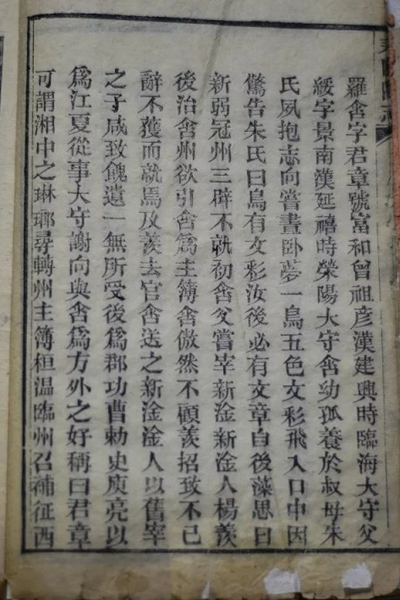 羅含字君章號富和曾祖彦漢建興時臨海大守父
綏字景南漢延禧時滎陽大守含幼孤養於叔母朱
氏夙抱志向嘗晝卧夢一鳥五色文彩飛入口中因
驚告朱氏曰鳥有文彩汝後必有文章自後藻思日
新弱冠州三辟不就初含父嘗宰新淦新淦人楊羨
後治含州欲引含爲主簿含傲然不顧羨招致不已
辭不獲而就焉及羨去官含送之新淦淦人以舊宰
之子咸致餽遺一無所受後爲郡功曹勅史庾亮以
爲江夏從事大守謝向與含爲方外之好稱曰君章
可謂湘中之琳瑯尋轉州主簿桓温臨州召補征西